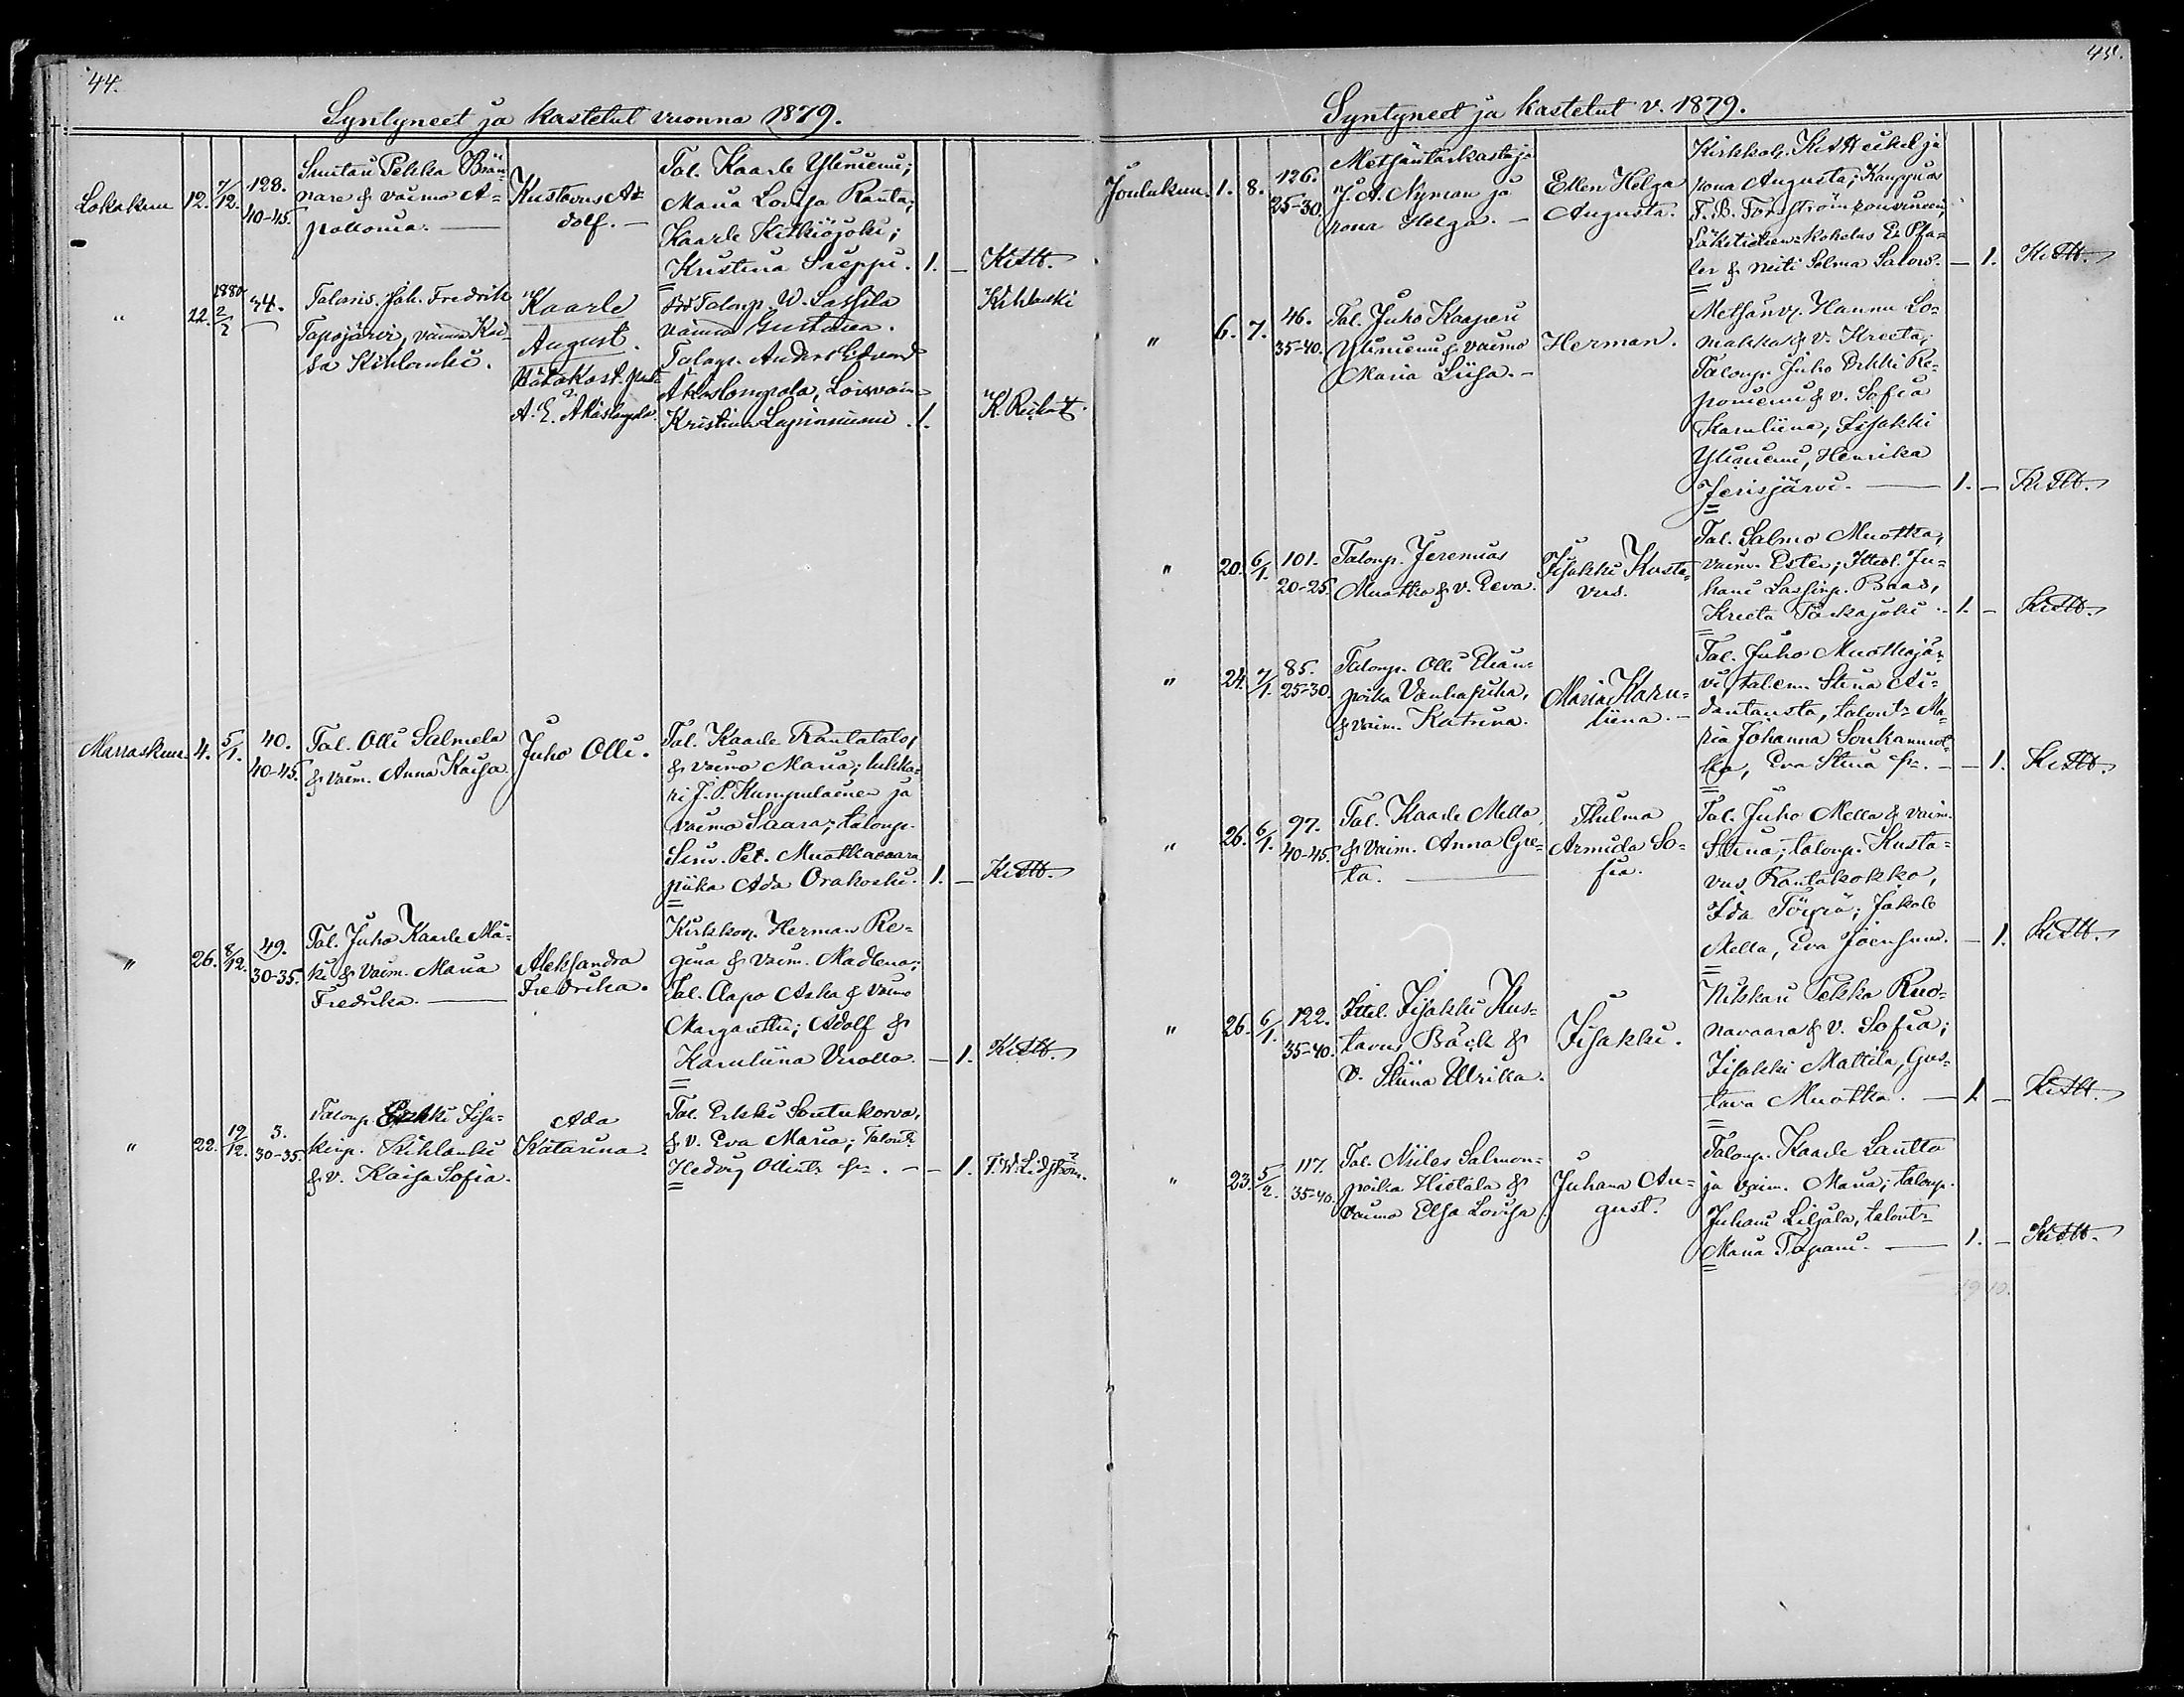 44.
Syntyneet ja kastetut vuonna 1879.
Lokakuu 12. 7/12. 128. 40-45.
Pekka Brän-
nare & vaimo A-
pollonia.
Kustavus A-
dolf.
Tal. Kaarle Yliniemi;
Maria Lovisa Ranta;
Kaarle Kitkiöjoki;
Kristina Sieppi. 1. -
" 22. 1880 2/2 34.
Joh. Fredrik
Tapojärvi, vaimo Kai-
sa Kihlanki.
Kaarle
August.
Hätäkast.
A. E. Äkäslompolo
Talonp. W. Lassila
vaimo Gustava.
Talonp. Anders Edvard
Äkäslompolo,
Kristina Lapinniemi. 1.
Kihlanki
Marraskuu. 4. 5/1. 40. 40-45.
Tal. Olli Salmela
& vaim. Anna Kaisa.
Juho Olli.
Tal. Kaarle Rantatalo,
& vaimo Maria; lukka-
ri J. P. Kumpulainen ja
vaimo Saara; talonp.
Sim. Pet. Muotkavaara
piika Ada Orakoski. 1. -
" 26. 8/12. 49. 30-35.
Tal. Juho Kaarle Mä-
ki & vaim. Maria
Fredrika.
Aleksandra
Fredrika.
Kirkkoh. Herman Re-
gina & vaim. Madlena;
Tal. Aapo Aska & vaimo
Margareta; Adolf &
Karuliina Vuollo. - 1.
" 22. 19/12. 3. 30-35.
Talonp. Erkki Isa-
kinp. Kihlanki
& v. Kaisa Sofia.
Ada
Katarina.
Tal. Erkki Soutukorva,
& v. Eva Maria; Talont.
Hedvig Ollint. - 1.
45.
Syntyneet ja kastetut v. 1879.
Joulukuu. 1. 8. 126. 25-30.
Metsäntarkastaja
J. A. Nyman ja
rova Helga. -
Ellen Helga
Augusta.
Kirkkoh. Ki Heikel ja
rova Augusta; Kauppias
F. B. Forsström rouvineen,
Lääketieteen-Kokelas E. Pfa-
ler & neiti Selma Salow. - 1.
" 6. 7. 46. 35-40.
Tal. Juho Kasperi
Yliniemi & vaimo
Maria Liisa. -
Herman.
Metsänv. Hannu Lo-
makka & v. Kreeta;
Talonp. Juho Erkki Re-
poniemi & v. Sofia
Karuliina; Iisakki
Yliniemi, Henrika
Jerisjärvi. 1. -
" 20. 6/1. 101. 20-25.
Talonp. Jeremias
Muotka & v. Eeva.
Iisakki Kusta-
vus.
Tal. Salmo Muotka,
vaimo Ester; Ittel. Ju-
hani Lassinp. Baas,
Kreeta Särkijoki. 1. -
" 24. 7/1. 85. 25-30.
Talonp. Olli Elian-
poika Vanhapiha,
& vaim. Katriina.
Maria Karu-
liina. -
Tal. Juho Muotkajär-
vi, talem. Stina Ai-
dantausta, talont. Ma-
ria Johanna Soukanmuot-
ka, Eva Stina - 1.
" 26. 6/1. 97. 40-45.
Tal. Kaarle Mella
& vaim. Anna Gre-
ta.
Hulma
Armida So-
fia.
Tal. Juho Mella & vaim.
Stina; talonp. Kusta-
vus Rantakokko,
Ida Törmä; Jakob
Mella, Eva Joensuu. - 1.
" 26. 6/1. 122. 35-40.
Ittel. Iisakki Kus-
tavus Bäck &
v. Stiina Ulrika.
Iisakki.
Nikkari Pekka Ruo-
navaara & v. Sofia;
Iisakki Mattila, Gus-
tava Muotka. - 1. -
" 23. 5/2. 117. 35-40.
Tal. Niiles Salmon-
poika Hietala &
vaimo Elsa Lovisa
Juhana Au-
gust.
Talonp. Kaarle Lautto
ja vaim. Maria; talonp.
Juhani Liljala, talont.
Maria Tapani. 1. -
19 10.